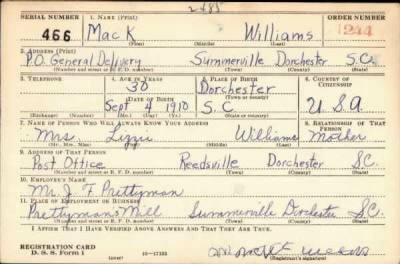 2485
SERIAL NUMBER 1. NAME (Print) ORDER NUMBER
466 Mack Williams 1244
(First) (Middle) (Last)
2. ADDRESS (Print)
P.O. General Delivery Summerville Dorchester S.C.
(Number and street or R. F. D. number) (Town) (County) (State)
3. TELEPHONE 4. AGE IN YEARS 5. PLACE OF BIRTH 6. COUNTRY OF CITIZENSHIP
30 Dorchester
DATE OF BIRTH (Town or county)
Sept 4 1910 S.C. U.S.A
(Mo.) (Day) (Yr.) (State or country)
7. NAME OF PERSON WHO WILL ALWAYS KNOW YOUR ADDRESS 8. RELATIONSHIP OF THAT PERSON
Mrs. Lizzie Williams Mother
(Mr., Mrs., Miss) (First) (Middle) (Last)
9. ADDRESS OF THAT PERSON
Post Office Reedsville Dorchester S.C.
(Number and street or R. F. D. number) (Town) (County) (State)
10. EMPLOYER'S NAME
Mr. J. F. Prettyman
11. PLACE OF EMPLOYMENT OR BUSINESS
Prettymans Mill Summerville Dorchester S.C.
(Number and street or R. F. D. number) (Town) (County) (State)
I AFFIRM THAT I HAVE VERIFIED ABOVE ANSWERS AND THAT THEY ARE TRUE.
REGISTRATION CARD
D. S. S. Form 1 (over)
(Registrant's signature)